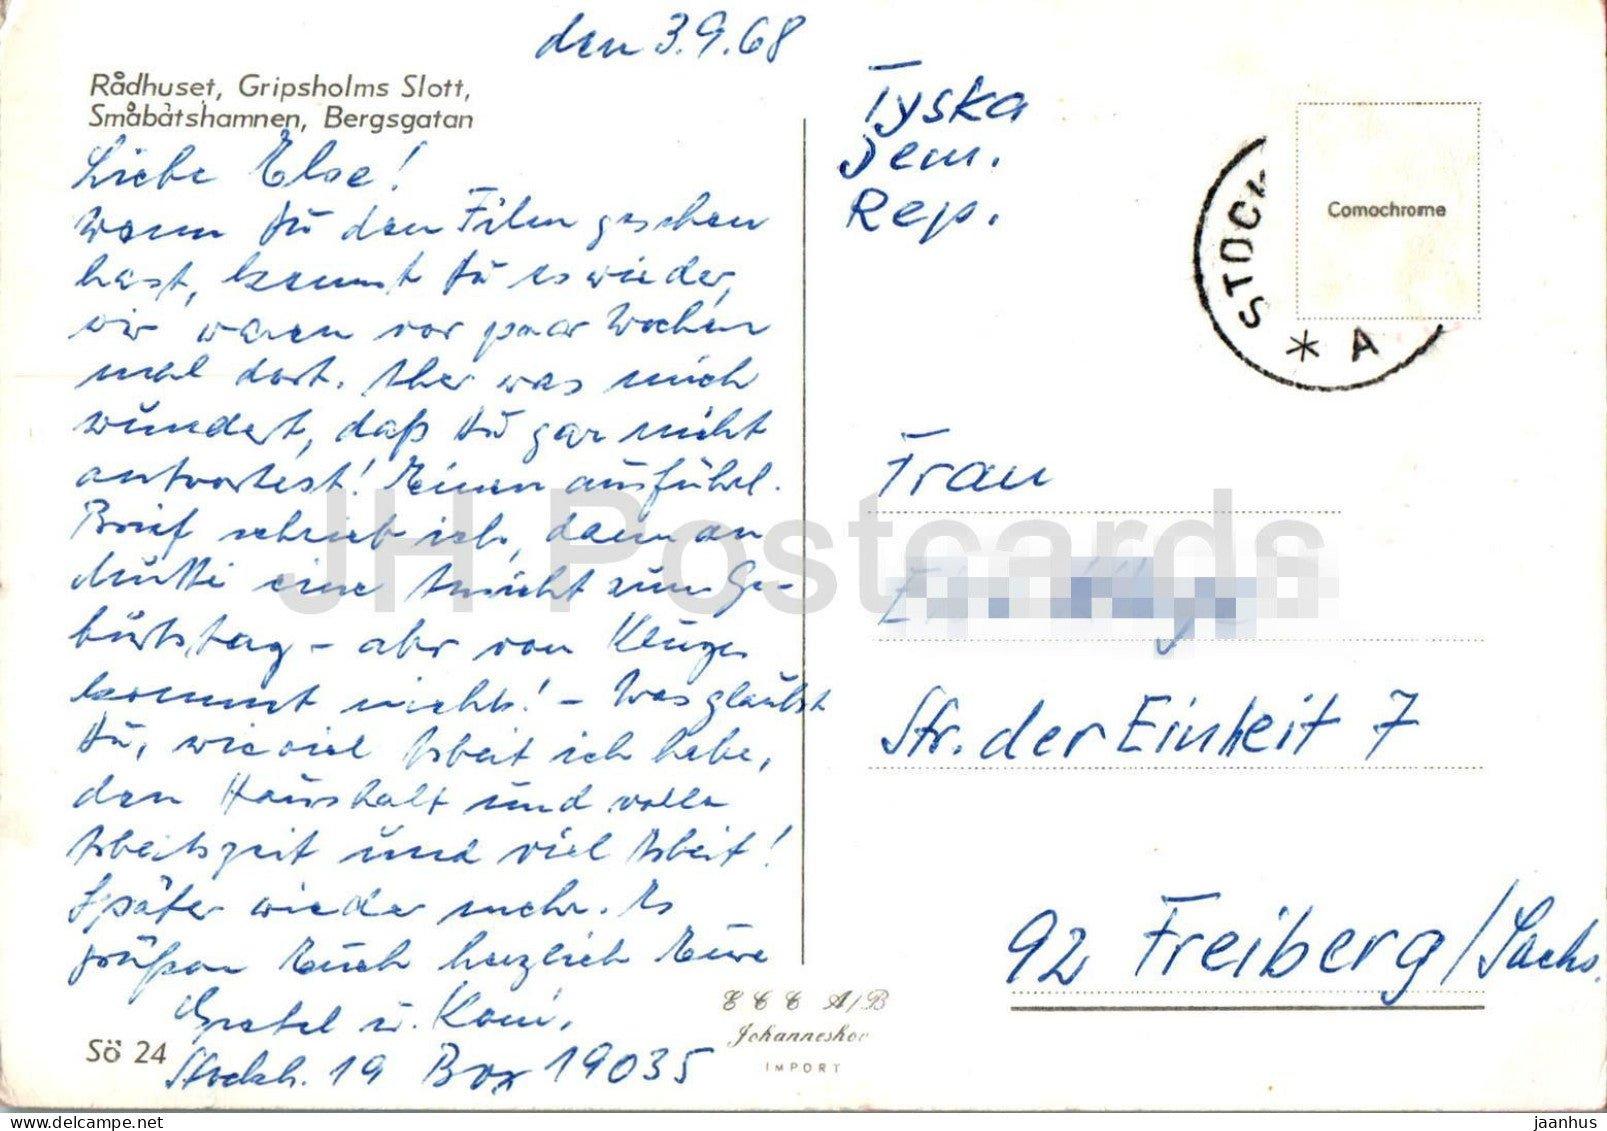 den 3.9.68
Rådhuset, Gripsholms Slott,
Småbåtshamnen, Bergsgatan
Liebe Else!
Wenn Du den Film gesehen
hast, kennst Du es wieder,
wir waren vor paar Wochen
mal dort. Aber was mich
wundert, daß Du gar nicht
antwortest! Einen ausführl.
Brief schrieb ich, dann an
Mutti eine Ansicht zum Ge-
burtstag – aber von Kluges
kommt nichts! – Was glaubst
Du, wieviel Arbeit ich habe,
den Haushalt und volle
Arbeitszeit und viel Arbeit!
Später wieder mehr. Es
grüßen Euch herzlich Eure
Gretel u.
Stockh. 19 Box 19035
Sö 24
Tyska
Dem.
Rep.
Comochrome
STOCK
* A
Frau
Str. der Einheit 7
92 Freiberg/Sachs.
A/B
Johanneshov
IMPORT
JH Postcards
delcampe.net
jaanhus